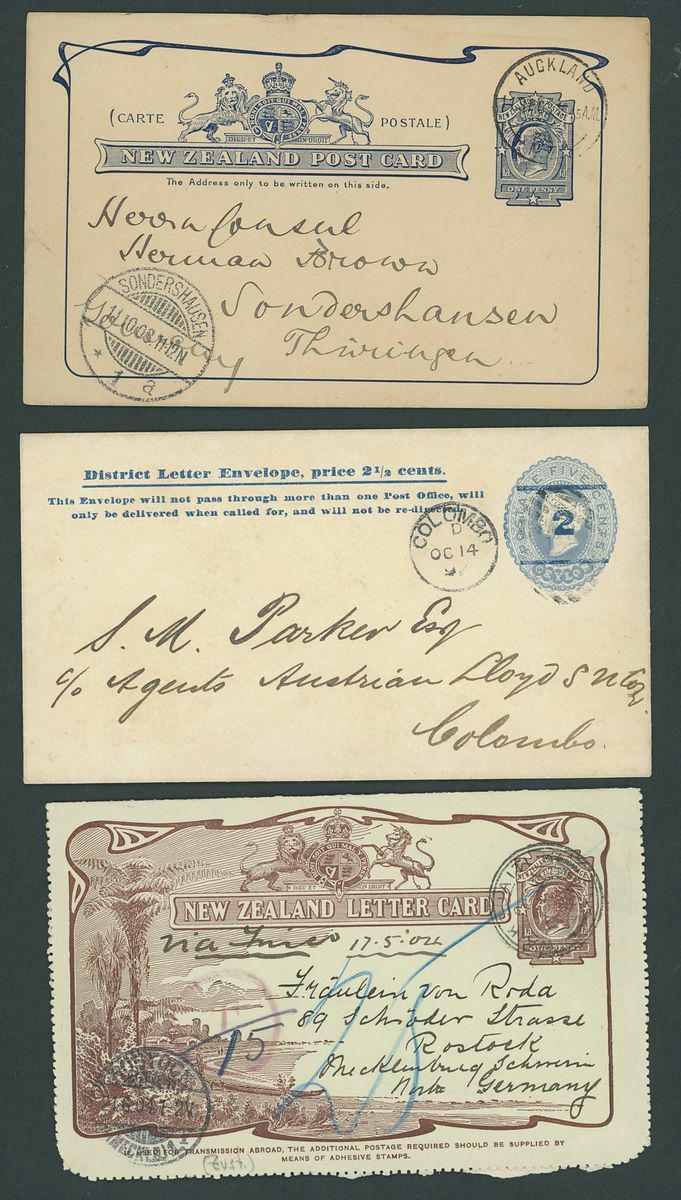 AUCKLAND
5 A.M.
(CARTE POSTALE)
HONI SOIT QUI MAL Y PENSE
DIEU ET MON DROIT
NEW ZEALAND POSTAGE
NEW ZEALAND POST CARD
ONE PENNY
The Address only to be written on this side.
Herrn Consul
Herman Brown
Sondershausen
Thüringen
Germany
SONDERSHAUSEN
11.10.08.11-12N.
* 1 a
District Letter Envelope, price 2½ cents.
This Envelope will not pass through more than one Post Office, will
only be delivered when called for, and will not be re-directed.
POSTAGE FIVE CENTS
CEYLON
2
COLOMBO
D
OC 14
S. M. Parker Esq
c/o Agents Austrian Lloyd S N Coy
Colombo.
HONI SOIT QUI MAL Y PENSE
DIEU ET MON DROIT
NEW ZEALAND LETTER CARD
ONE PENNY
via Frisco 17.5.04
Fräulein von Roda
89 Schröder Strasse
Rostock
Mecklenburg Schwerin
Germany
15
25
ROSTOCK
IF USED FOR TRANSMISSION ABROAD, THE ADDITIONAL POSTAGE REQUIRED SHOULD BE SUPPLIED BY
MEANS OF ADHESIVE STAMPS.